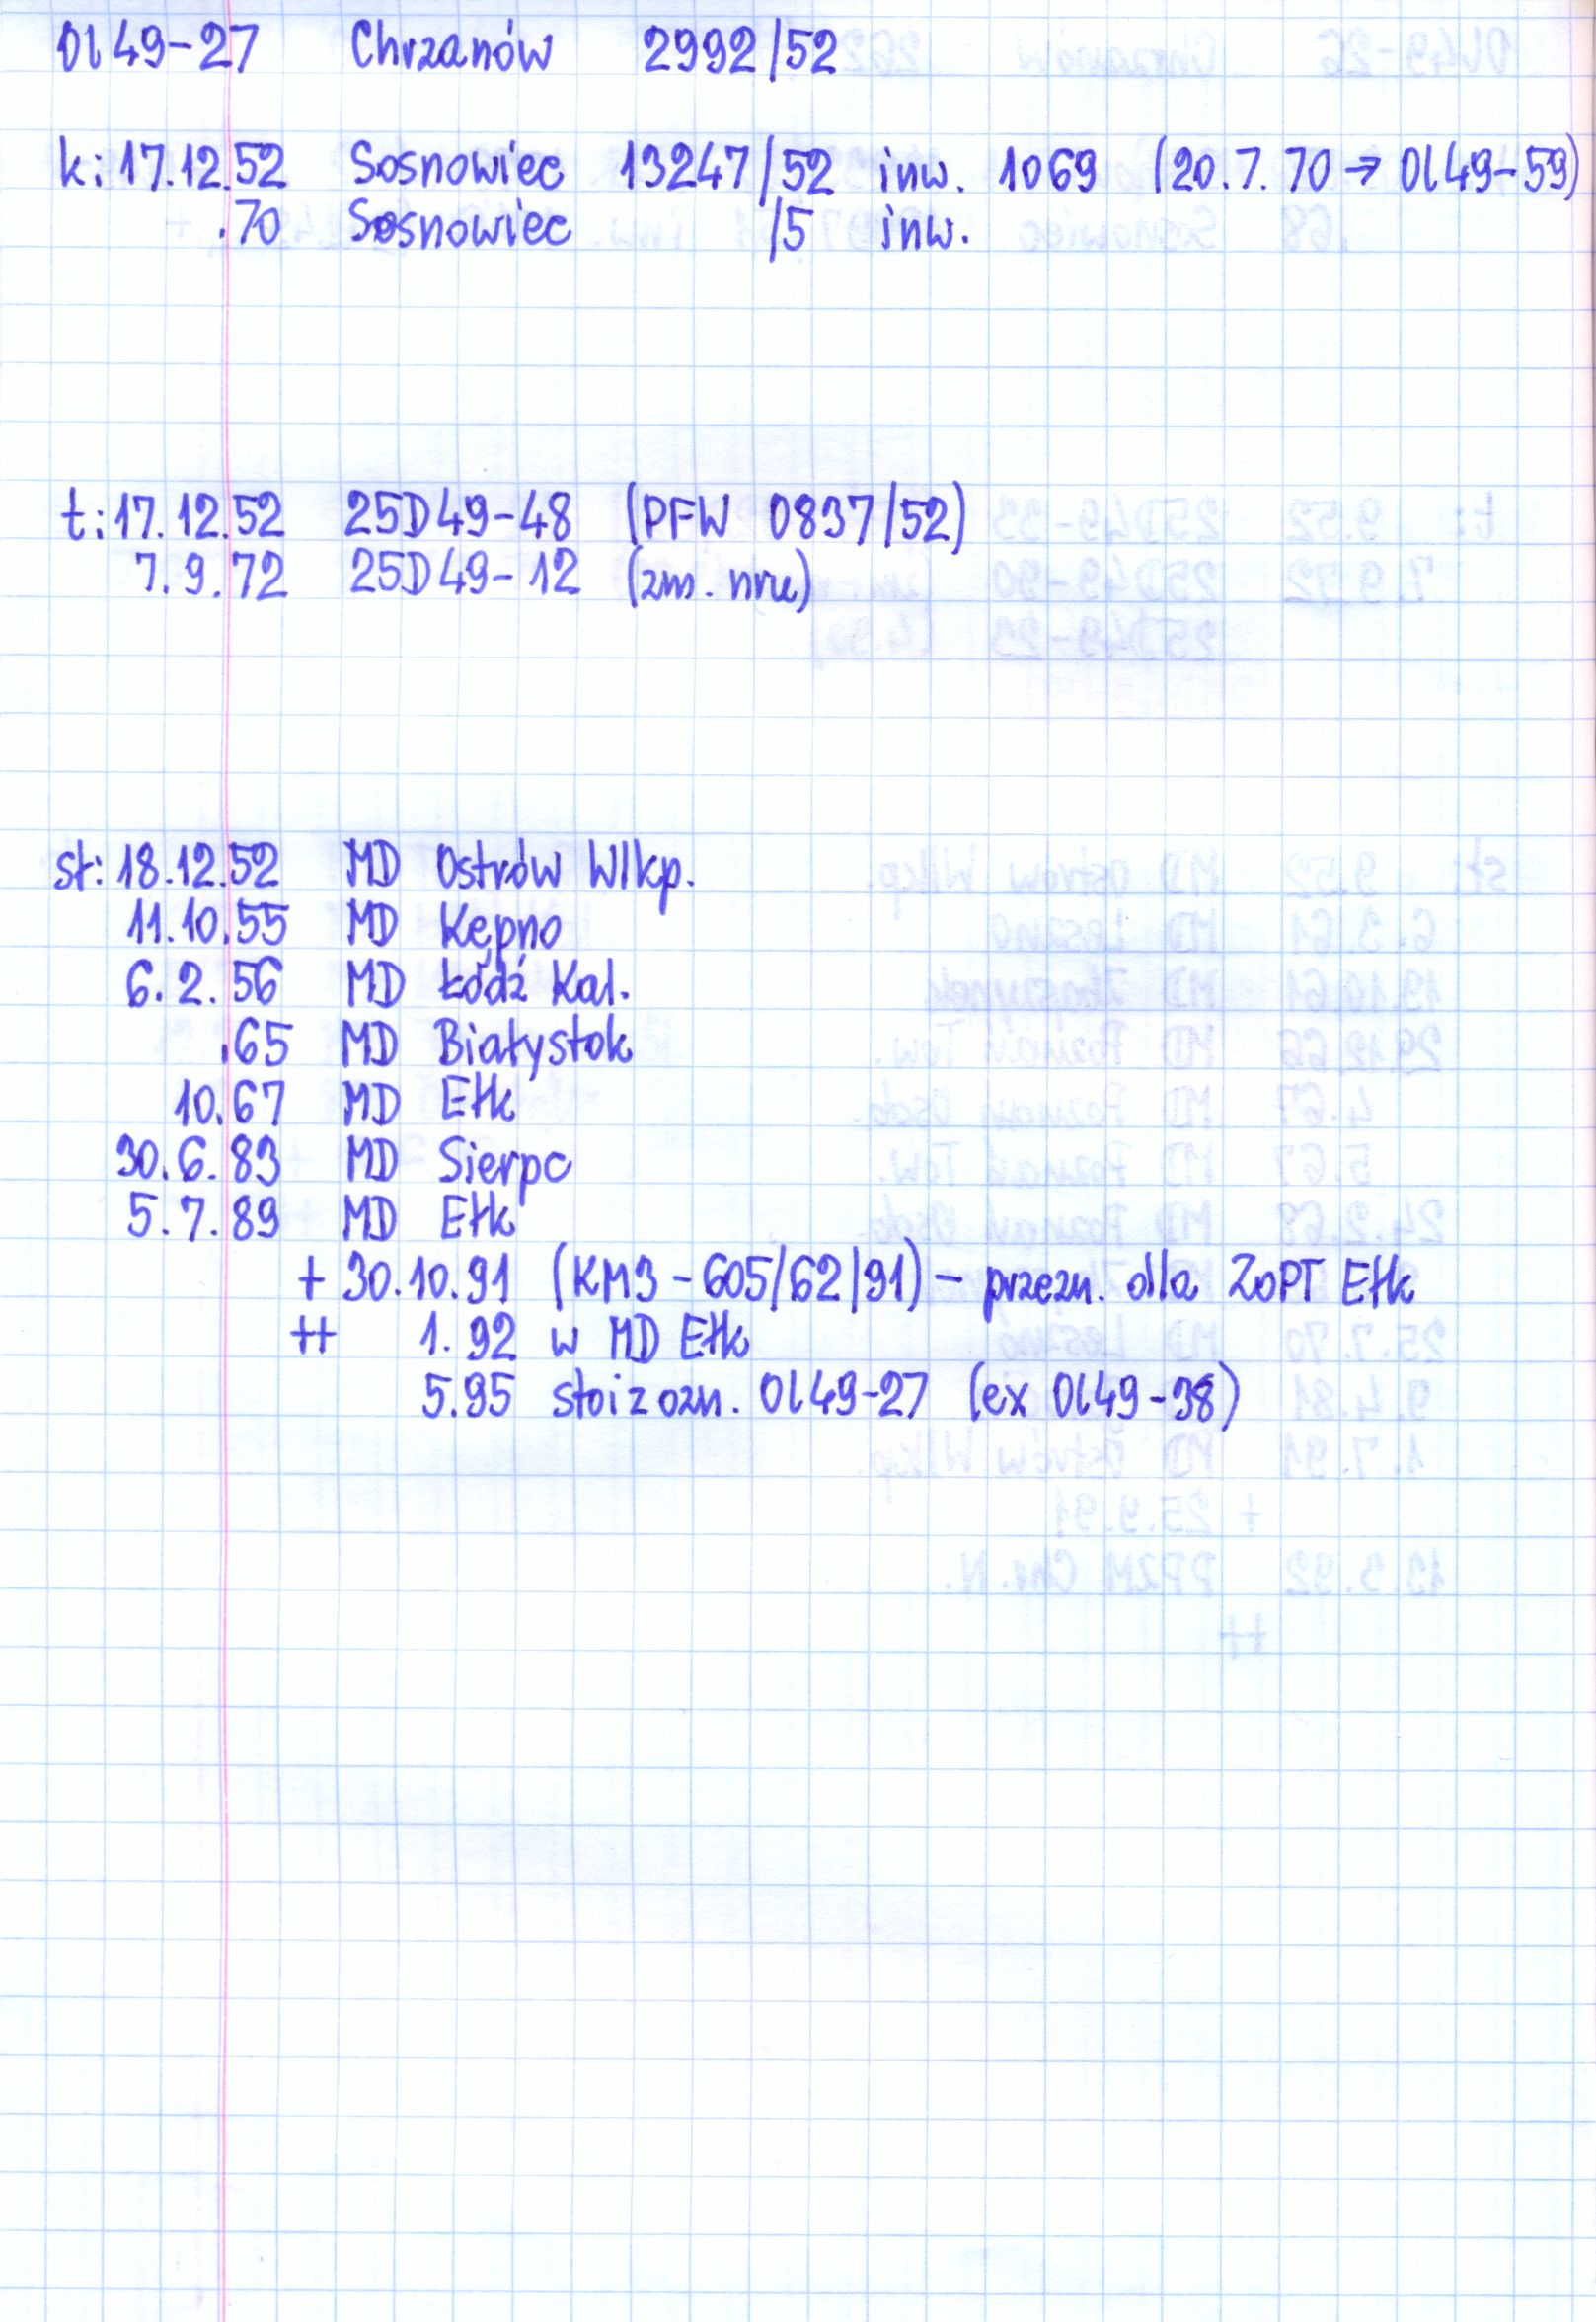 Ol49-27 Chrzanów 2992/52
k: 17.12.52 Sosnowiec 13247/52 inw. 1069 (20.7.70 → Ol49-59)
.70 Sosnowiec /5 inw.
t: 17.12.52 25D49-48 (PFW 0837/52)
7.9.72 25D49-12 (zm. nru)
st: 18.12.52 MD Ostrów Wlkp.
11.10.55 MD Kępno
6.2.56 MD Łódź Kal.
.65 MD Białystok
10.67 MD Ełk
30.6.83 MD Sierpc
5.7.89 MD Ełk
+ 30.10.91 (KM3-605/62/91) - przezn. dla ZOPT Ełk
++ 1.92 w MD Ełk
5.95 stoi z ozn. Ol49-27 (ex Ol49-98)